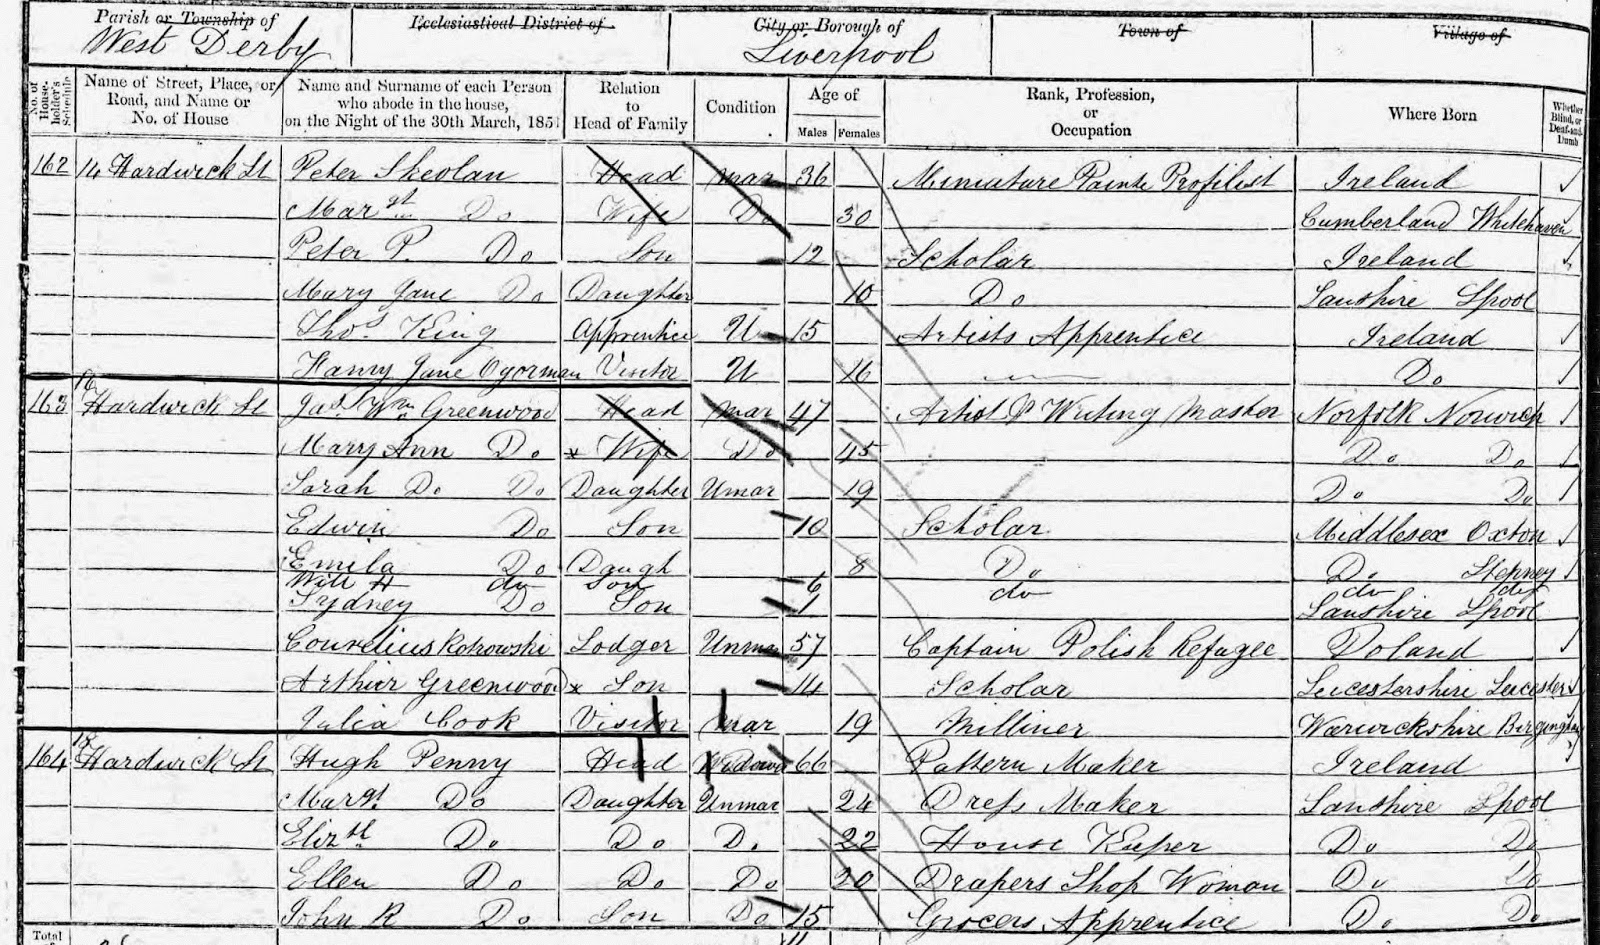 Parish or Township of
West Derby
Ecclesiastical District of
City or Borough of
Liverpool
Town of
Village of
No. of House-holder's Schedule
Name of Street, Place, or Road, and Name or No. of House
Name and Surname of each Person who abode in the house, on the Night of the 30th March, 1851
Relation to Head of Family
Condition
Age of
Males Females
Rank, Profession, or Occupation
Where Born
Whether Blind, or Deaf-and-Dumb
162 14 Hardwick St Peter Skeolan Head Mar 36 Miniature Painte Profilist Ireland
Margt Do Wife Do 30 Cumberland Whitehaven
Peter P. Do Son 12 Scholar Ireland
Mary Jane Do Daughter 10 Do Lanshire Lpool
Thos King Apprentice U 15 Artists Apprentice Ireland
Fanny Jane Ogorman Visitor U 16 Do
163 16 Hardwick St Jas Wm Greenwood Head Mar 47 Artist & Writing Master Norfolk Norwich
Mary Ann Do * Wife Do 45 Do Do
Sarah Do Do Daughter Umar 19 Do Do
Edwin Do Son 10 Scholar Middlesex Oxton
Emila Do Daugh 8 Do Do Stepney
Will H do Son 6 do do do
Sydney Do Son 1 Lanshire Lpool
Courelius Kotrowski Lodger Unmar 57 Captain Polish Refugee Poland
Arthur Greenwood * Son 14 Scholar Leicestershire Leicester
Julia Cook Visitor Mar 19 Milliner Warwickshire
164 18 Hardwick St Hugh Penny Head Widower 66 Pattern Maker Ireland
Margt. Do Daughter Unmar 24 Dress Maker Lanshire Lpool
Elizth Do Do Do 22 House Keeper Do Do
Ellen Do Do Do 20 Drapers Shop Woman Do Do
John R Do Son Do 15 Grocers Apprentice Do Do
Total
11